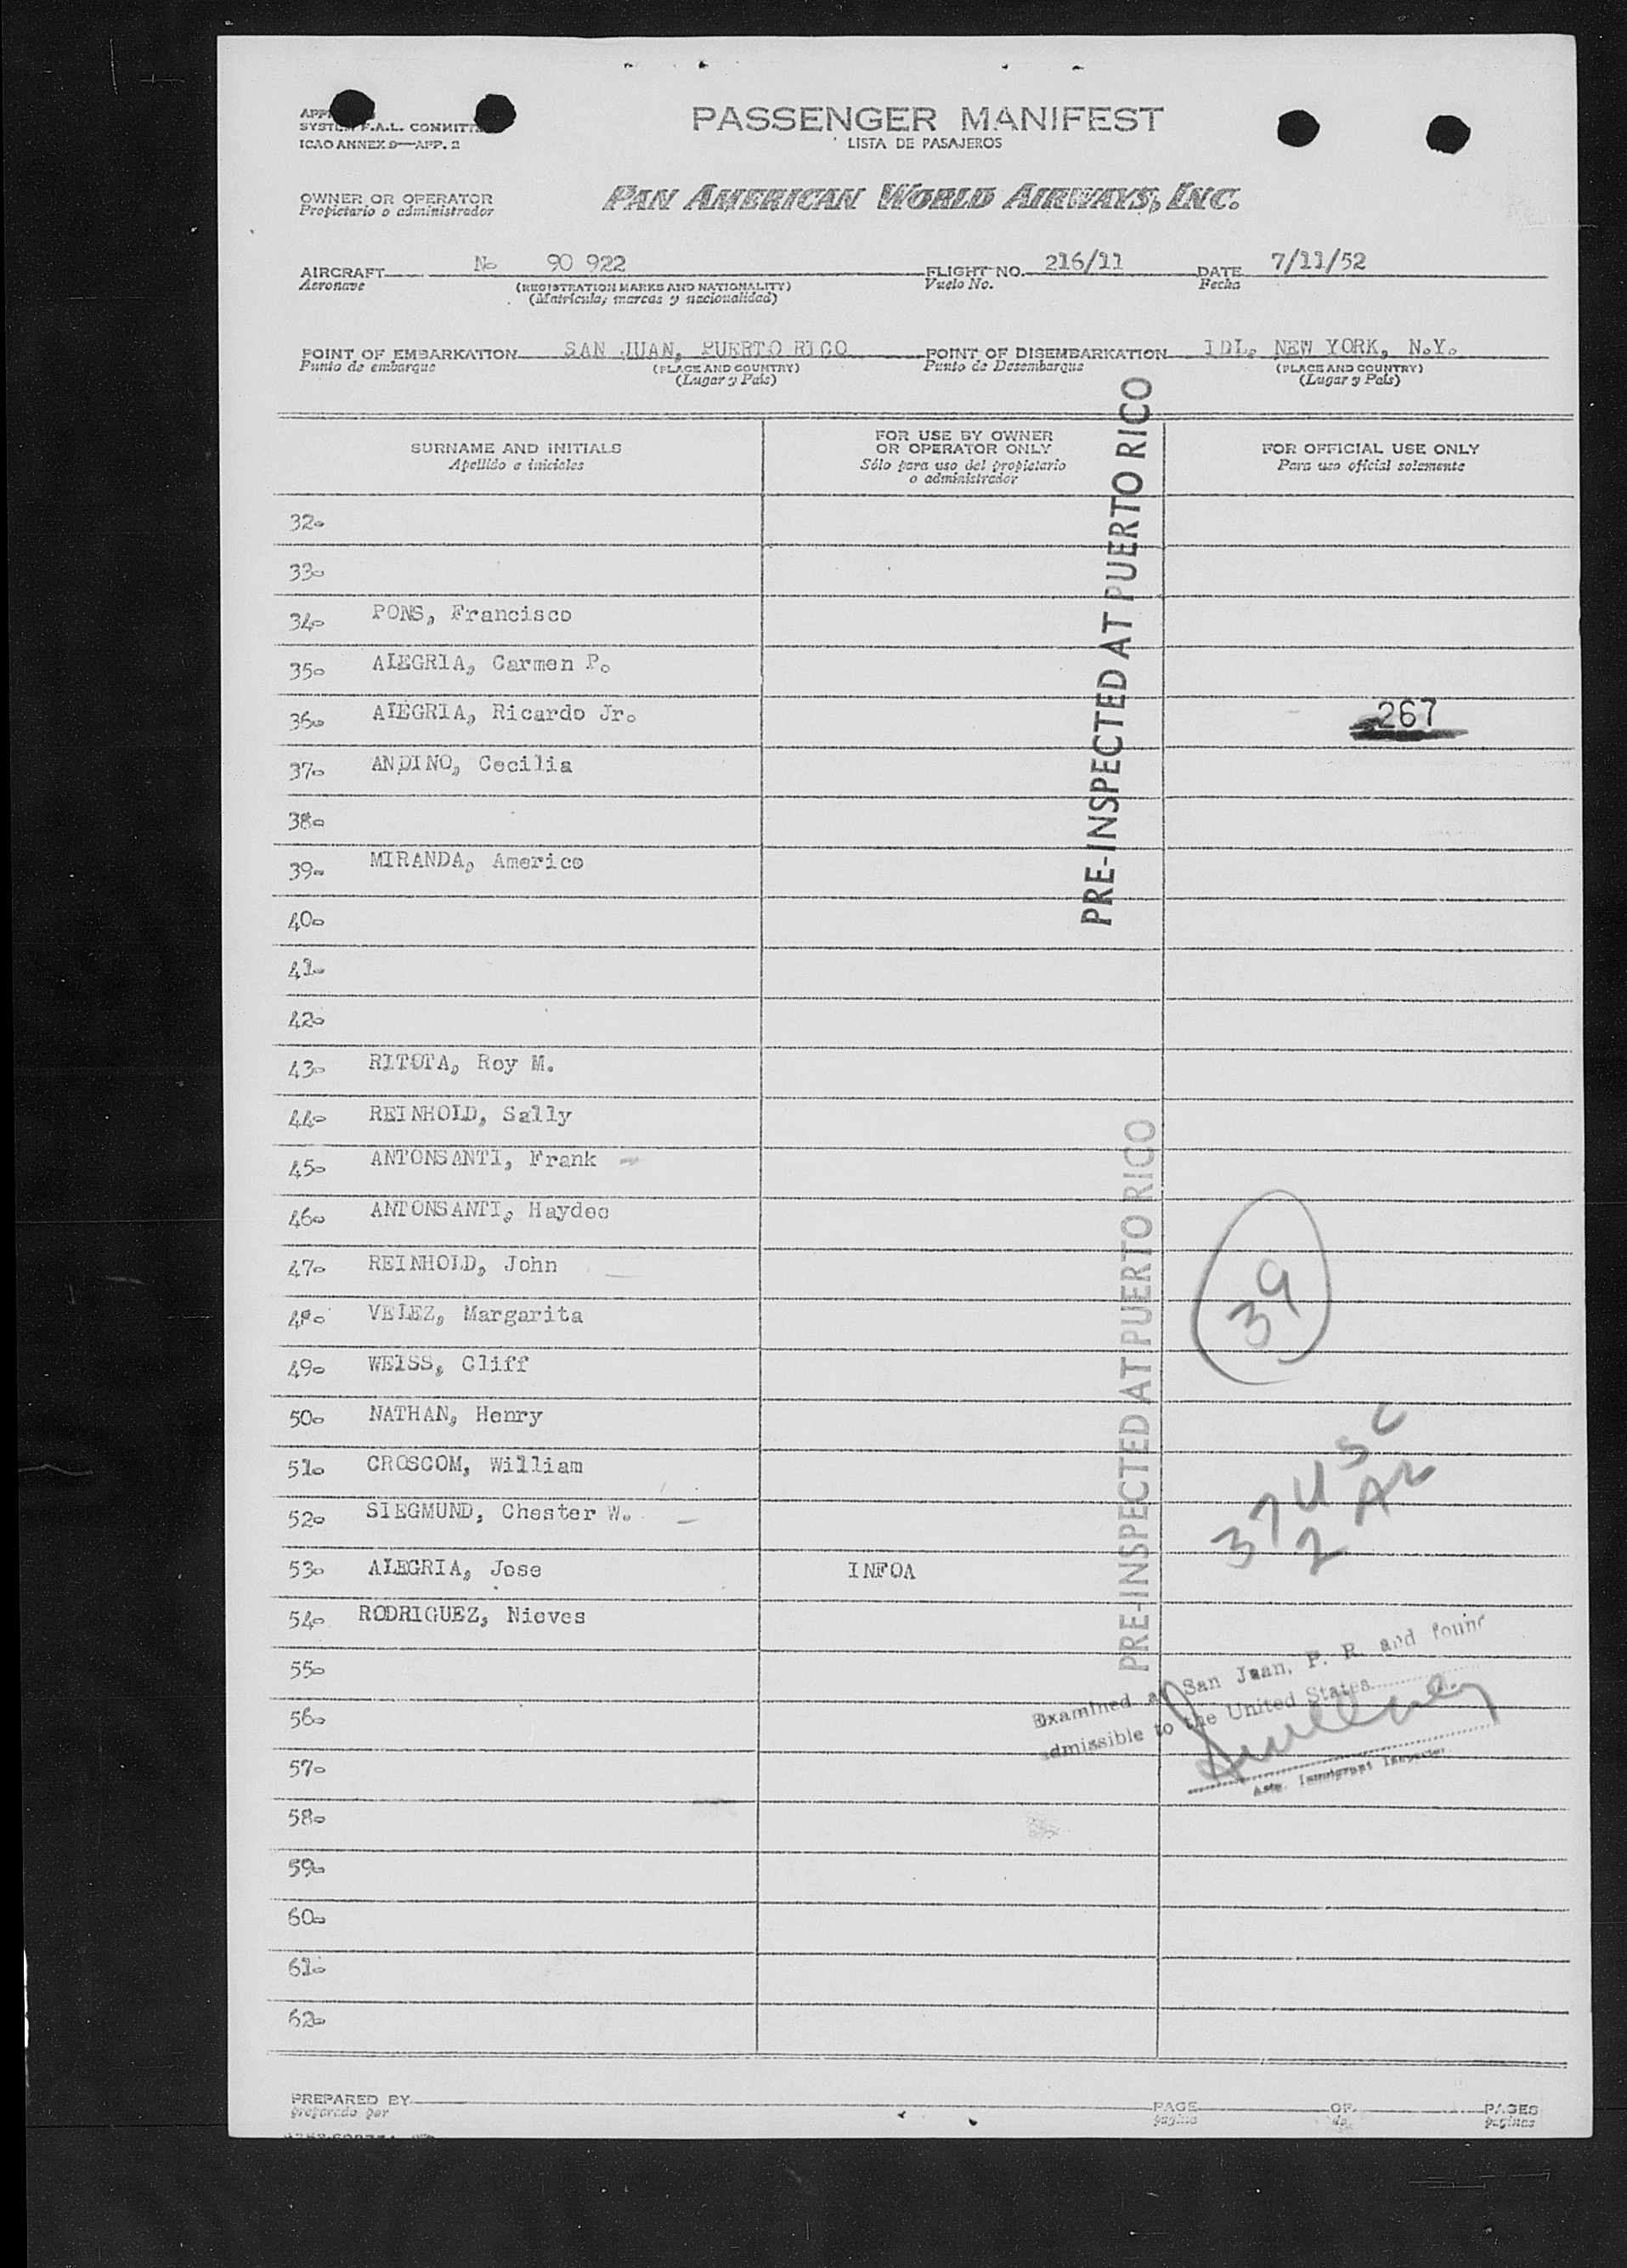 PASSENGER MANIFEST
LISTA DE PASAJEROS
SYSTEM F.A.L. COMMITTEE
ICAO ANNEX 9—APP. 2
OWNER OR OPERATOR
Propietario o administrador
PAN AMERICAN WORLD AIRWAYS, INC.
AIRCRAFT No 90 922 FLIGHT NO. 216/11 DATE 7/11/52
Aeronave (REGISTRATION MARKS AND NATIONALITY) Vuelo No. Fecha
(Matrícula, marcas y nacionalidad)
POINT OF EMBARKATION SAN JUAN, PUERTO RICO POINT OF DISEMBARKATION IDL. NEW YORK, N.Y.
Punto de embarque (PLACE AND COUNTRY) Punto de Desembarque (PLACE AND COUNTRY)
(Lugar y País) (Lugar y País)
SURNAME AND INITIALS
Apellido e iniciales
FOR USE BY OWNER
OR OPERATOR ONLY
Sólo para uso del propietario
o administrador
FOR OFFICIAL USE ONLY
Para uso oficial solamente
PRE-INSPECTED AT PUERTO RICO
32.
33.
34. PONS, Francisco
35. ALEGRIA, Carmen P.
36. ALEGRIA, Ricardo Jr. 267
37. ANDINO, Cecilia
38.
39. MIRANDA, Americo
40.
41.
42.
43. RITOTA, Roy M.
44. REINHOLD, Sally
45. ANTONSANTI, Frank
46. ANTONSANTI, Haydee
47. REINHOLD, John
48. VELEZ, Margarita
49. WEISS, Cliff
50. NATHAN, Henry
51. CROSCOM, William
52. SIEGMUND, Chester W.
53. ALEGRIA, Jose INFOA
54. RODRIGUEZ, Nieves
55.
56.
57.
58.
59.
60.
61.
62.
PRE-INSPECTED AT PUERTO RICO
39
37 USC
2 AL
Examined at San Juan, P. R. and found
admissible to the United States
Immigrant Inspector
PREPARED BY PAGE OF PAGES
preparado por página de páginas